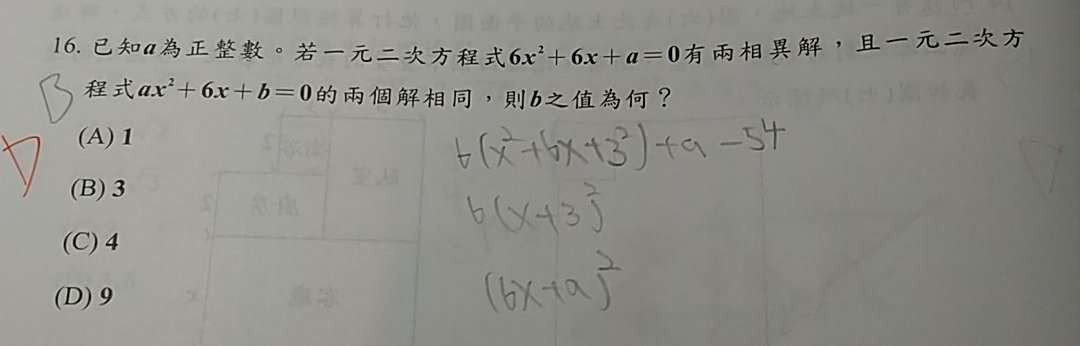 16. 已知a為正整數。若一元二次方程式6x²+6x+a=0有兩相異解，且一元二次方
程式ax²+6x+b=0的兩個解相同，則b之值為何？
B
D
(A) 1
(B) 3
(C) 4
(D) 9
6(x²+6x+3²)+a-54
6(x+3)²
(6x+a)²